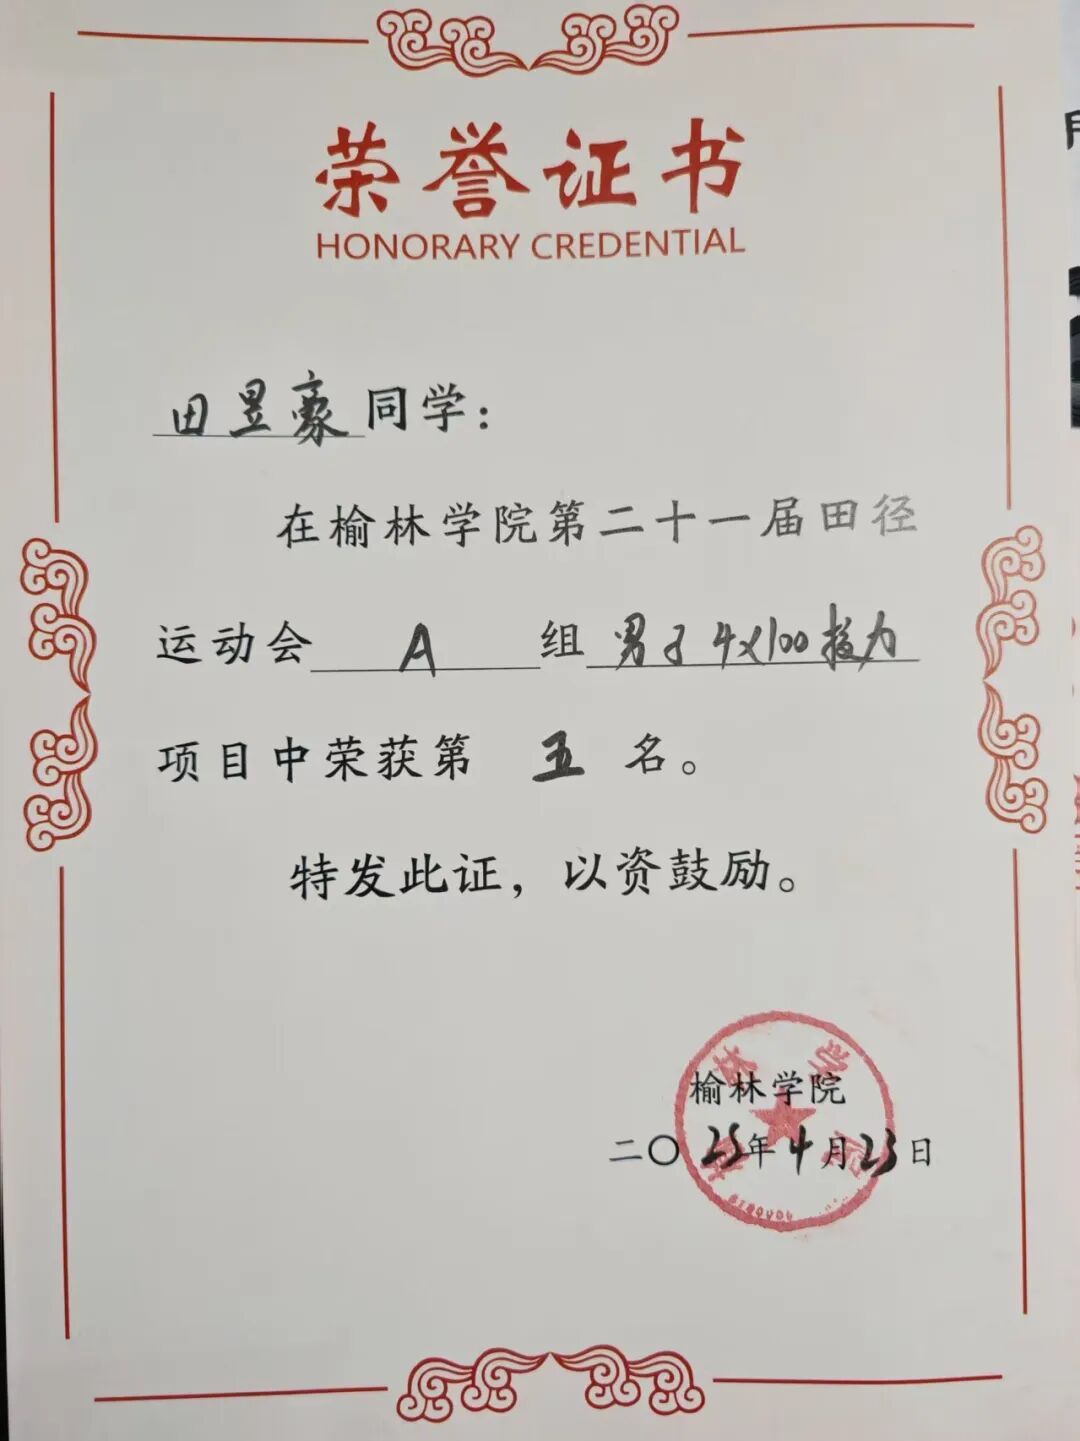 荣誉证书
HONORARY CREDENTIAL
田昱豪同学：
在榆林学院第二十一届田径
运动会 A 组 男子4×100接力
项目中荣获第 五 名。
特发此证，以资鼓励。
榆林学院
二〇25年4月23日
榆林学院